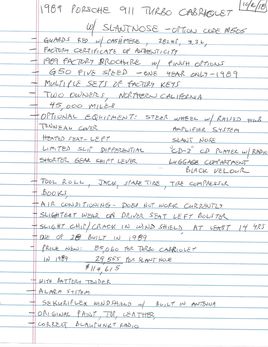 1989 PORSCHE 911 TURBO CABRIOLET
W/ SLANTNOSE - OPTION CODE M505
- GUARDS RED W/ CASHMERE, 3.3L
- FACTORY CERTIFICATE OF AUTHENTICITY
- 1989 FACTORY BROCHURE W/ FINISH OPTIONS
- G50 FIVE SPEED - ONE YEAR ONLY - 1989
- MULTIPLE SETS OF FACTORY KEYS
- TWO OWNERS, NORTHERN CALIFORNIA
- 45,000 MILES
- OPTIONAL EQUIPMENT: STEER WHEEL W/ RAISED HUB
TONNEAU COVER AMPLIFIER SYSTEM
HEATED SEAT - LEFT SLANT NOSE
LIMITED SLIP DIFFERENTIAL "CD-2" CD PLAYER W/ RADIO
SHORTER GEAR SHIFT LEVER LUGGAGE COMPARTMENT
BLACK VELOUR
- TOOL ROLL, JACK, SPARE TIRE, TIRE COMPRESSOR
BOOKS,
- AIR CONDITIONING - DOES NOT WORK CURRENTLY
- SLIGHTEST WEAR ON DRIVER SEAT LEFT BOLSTER
- SLIGHT CHIP/CRACK IN WIND SHIELD AT LEAST 14 YRS
- ONE OF BUILT IN 1989
- PRICE NEW: 85,060 FOR TURBO CABRIOLET
IN 1989 29,555 FOR SLANT NOSE
$114,615
- WITH BATTERY TENDER
- ALARM SYSTEM
- SEKURIFLEX WINDSHIELD W/ BUILT IN ANTENNA
- ORIGINAL PAINT, TOP, LEATHER,
- CORRECT BLAUPUNKT RADIO